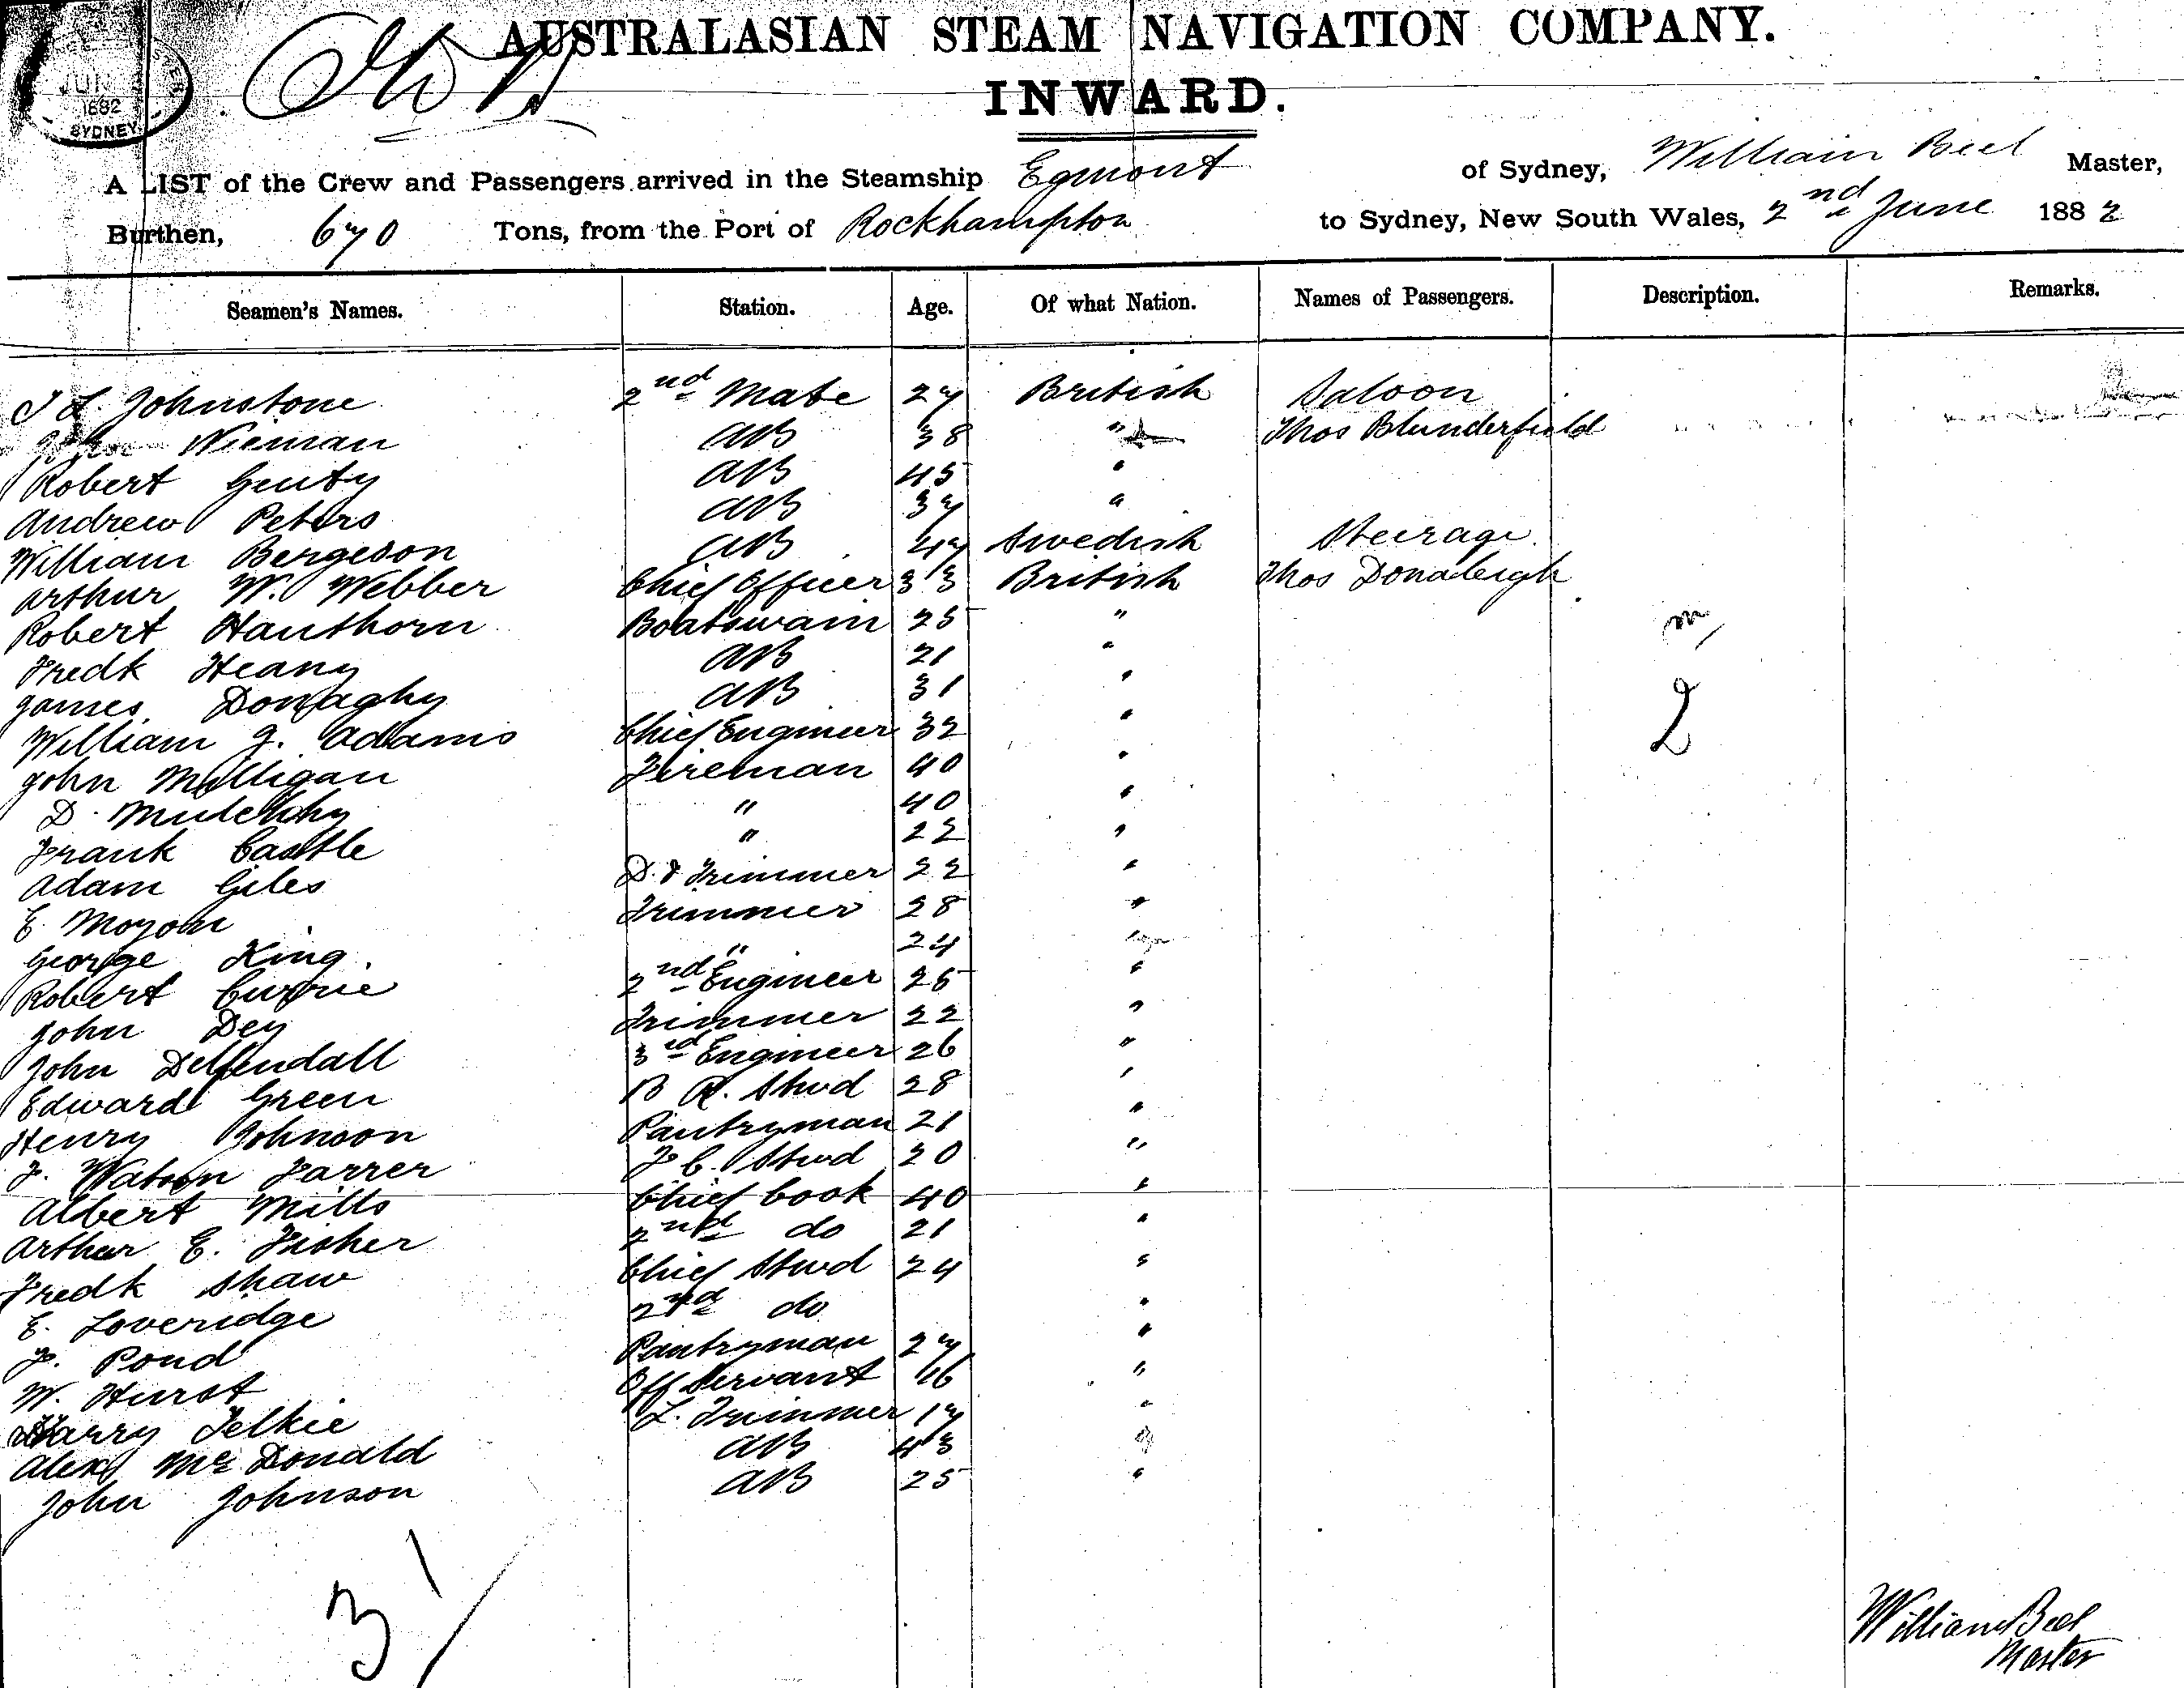 JUN
1882
SYDNEY
AUSTRALASIAN STEAM NAVIGATION COMPANY.
INWARD.
A LIST of the Crew and Passengers arrived in the Steamship Egmont of Sydney, William Beel Master,
Burthen, 670 Tons, from the Port of Rockhampton to Sydney, New South Wales, 2nd June 1882
Seamen's Names. Station. Age. Of what Nation. Names of Passengers. Description. Remarks.
J L Johnstone 2nd Mate 27 British Saloon
Nieman AB 38 " Thos Blunderfield
Robert Genty AB 45 "
Andrew Peters AB 37 "
William Bergeson AB 47 Swedish Steerage
Arthur W. Webber Chief Officer 33 British Thos Donaleigh
Robert Hauthorn Boatswain 25 "
Fredk Heany AB 21 "
James Donaghy AB 31 "
William J. Adams Chief Engineer 32 " 2
John Mulligan Fireman 40 "
D. " 40 "
Frank Castle " 22 "
Adam Giles D. & Trimmer 22 "
E. Trimmer 28 "
George King " 24 "
Robert Currie 2nd Engineer 25 "
John Dey Trimmer 22 "
John Delfendall 3rd Engineer 26 "
Edward Green B R. Stwd 28 "
Henry Johnson Pantryman 21 "
F. Watson Farrer F C. Stwd 20 "
Albert Mills Chief Cook 40 "
Arthur E. Fisher 2nd do 21 "
Fredk Shaw Chief Stwd 24 "
E. Loveridge 2nd do "
F. Pond Pantryman 27 "
W. Hurst Off Servant 16 "
Harry Telkie L. Trimmer 17 "
Alex Mc Donald AB 43 "
John Johnson AB 25 "
31
William Beel
Master